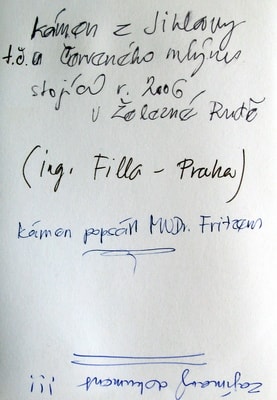 Kámen z Jihlavy
t.č. u Červeného mlýna
stojící r. 2006
v Železné Rudě
(ing. Filla - Praha)
Kámen popsán MUDr. Fritzem
Zajímavý dokument !!!